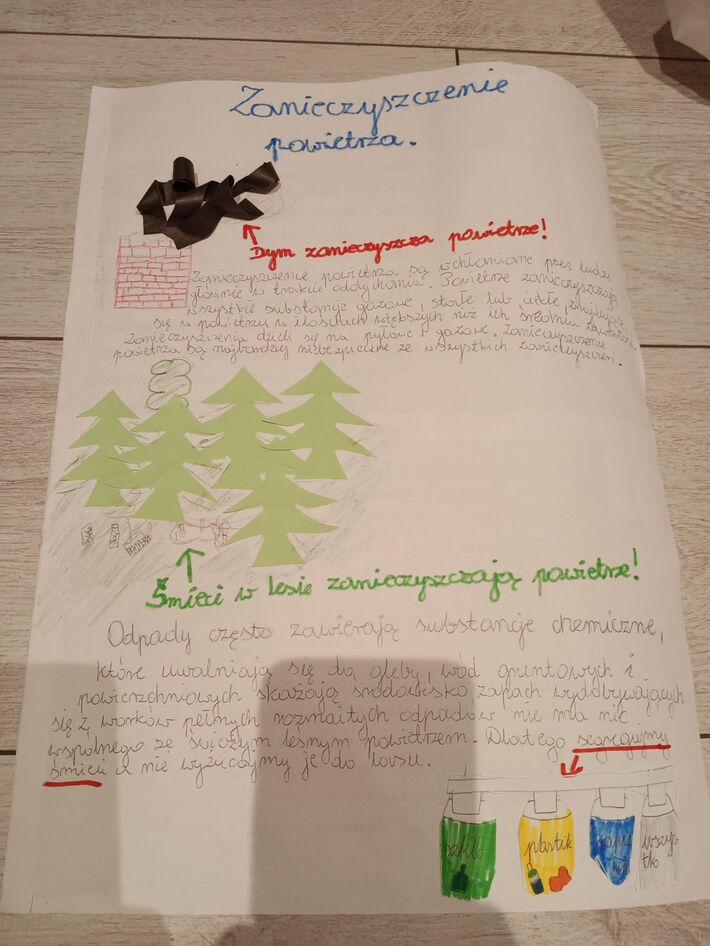 Zanieczyszczenie
powietrza.
Dym zanieczyszcza powietrze!
Zanieczyszczenie powietrza są wchłaniane przez ludzi
głównie w trakcie oddychania. Powietrze zanieczyszczają
wszystkie substancje gazowe, stałe lub ciekłe, znajdujące
się w powietrzu w ilościach większych niż ich średnia zawartość.
Zanieczyszczenia dzieli się na pyłowe i gazowe. Zanieczyszczenie
powietrza są najbardziej niebezpieczne ze wszystkich zanieczyszczeń.
Śmieci w lesie zanieczyszczają powietrze!
Odpady często zawierają substancje chemiczne,
które uwalniają się do gleby, wód gruntowych i
powierzchniowych skażają środowisko zapach wydobywających
się z worków pełnych rozmaitych odpadów nie ma nic
wspólnego ze świeżym leśnym powietrzem. Dlatego segregujmy
śmieci a nie wyrzucajmy je do lasu.
szkło plastik wszys-
tko